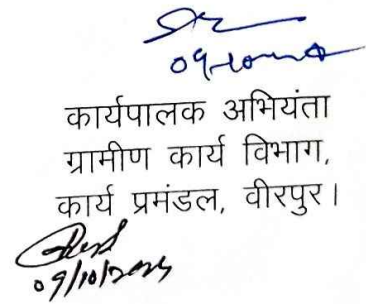 कार्यपालक अभियंता
ग्रामीण कार्य विभाग,
कार्य प्रमंडल, वीरपुर।
09/10/2024